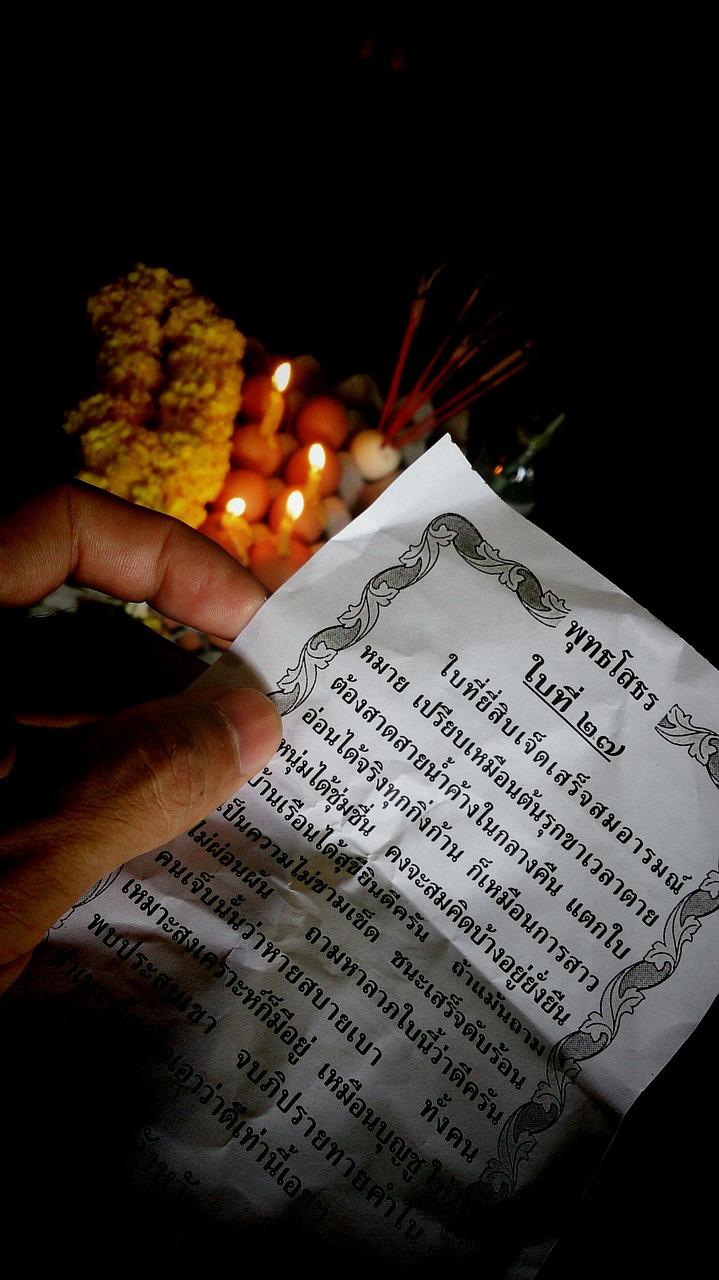 พุทธโสธร
ใบที่ ๒๗
ใบที่ยี่สิบเจ็ดเสร็จสมอารมณ์
หมาย เปรียบเหมือนต้นรุกขาเวลาตาย
ต้องสาดสายน้ำค้างในกลางคืน แตกใบ
อ่อนได้จริงทุกกิ่งก้าน ก็เหมือนการสาว
หนุ่มได้ชุ่มชื่น คงจะสมคิดบ้างอยู่ยั่งยืน
บ้านเรือนได้สุขยินดีครัน ถ้าแม้นถาม
เป็นความไม่ขามเข็ด ชนะเสร็จดับร้อน
ไม่ผ่อนผัน ถามหาลาภใบนี้ว่าดีครัน
คนเจ็บนั้นว่าหายสบายเบา ทั้งคน
เหมาะสงเคราะห์ก็มีอยู่ เหมือนบุญชู ให้
พบประสบเขา จบภิปรายทายคำใน
เอวว่าดีเท่านี้เอย